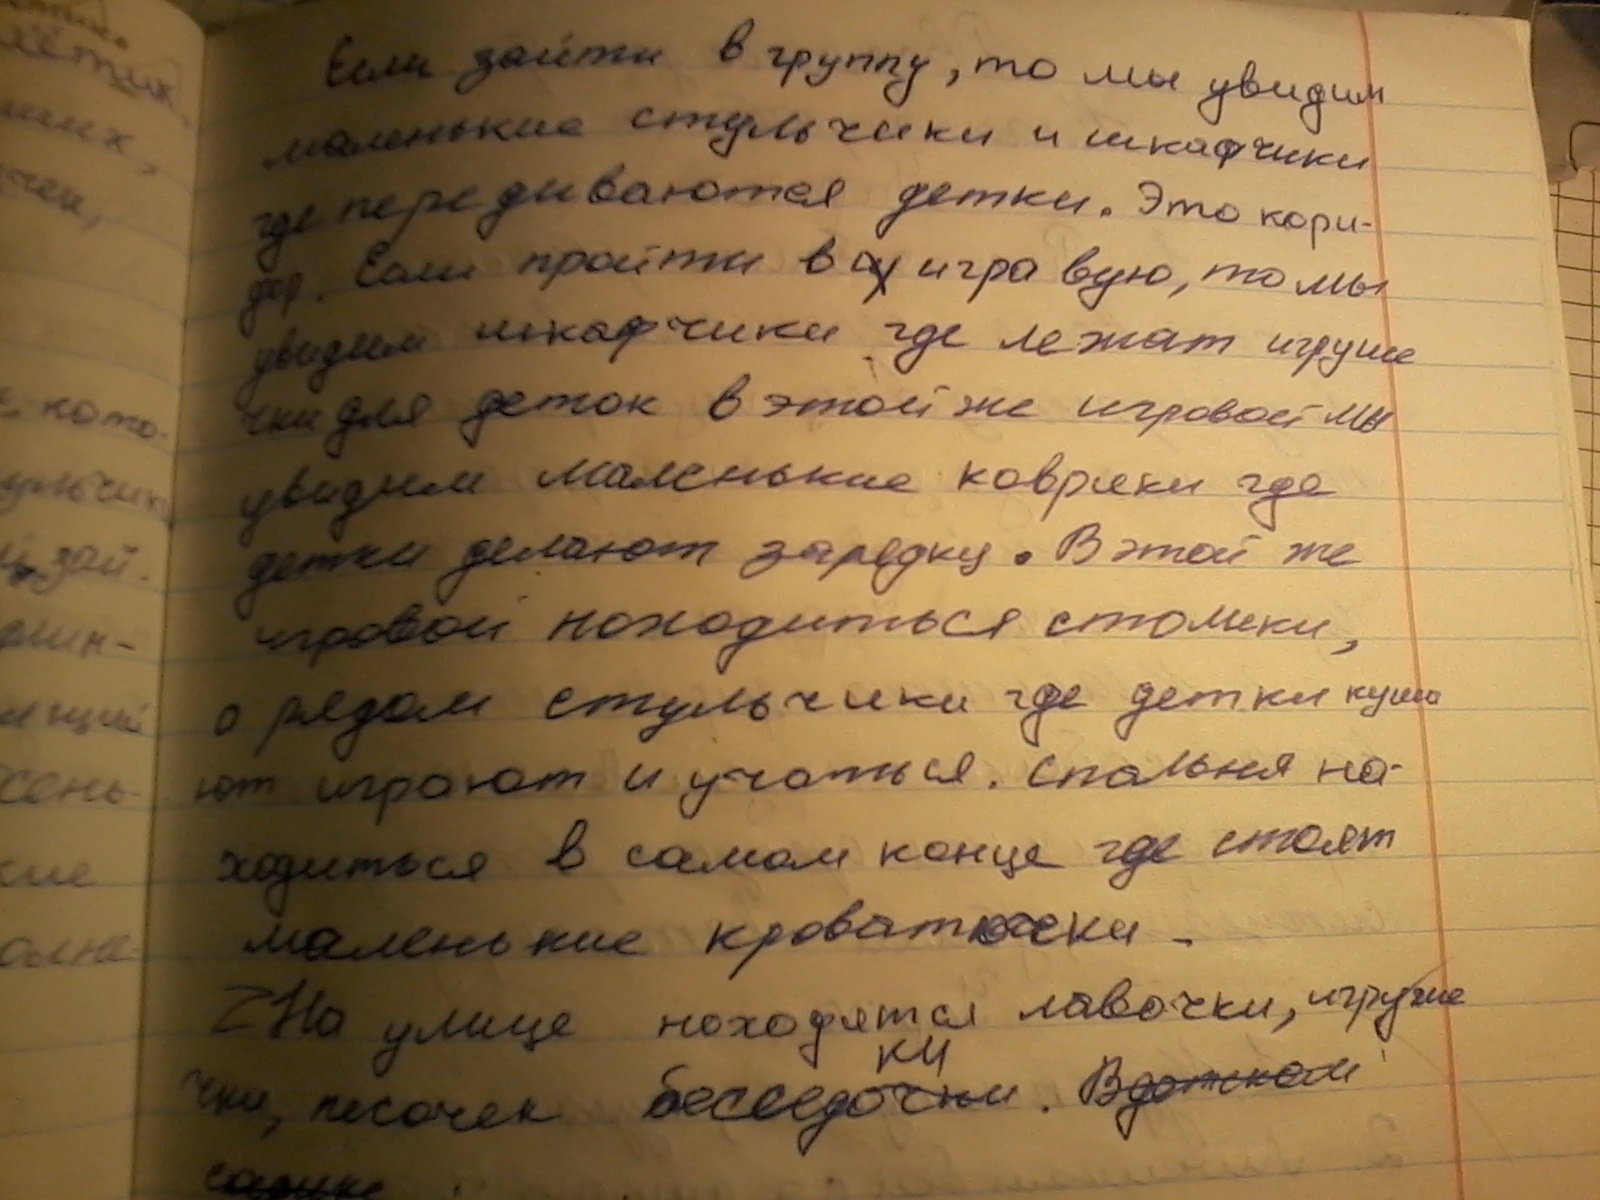 Если зайти в группу, то мы увидим
маленькие стульчики и шкафчики
где передиваются детки. Это кори-
дор. Если пройти в игравую, то мы
увидим шкафчики где лежат игруше
чки для деток в этой же игровой мы
увидим маленькие коврики где
детки делают зарядку. В этой же
игровой находиться столики,
а рядом стульчики где детки куша
ют играют и учаться. Спальня на-
ходиться в самом конце где стоят
маленькие кроваточки.
На улице находятся лавочки, игруше
ки
чки, песочек бесседочки. В детском
садике